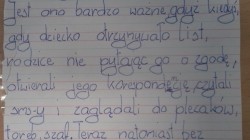 Jest ono bardzo ważne, gdyż kiedyś
gdy dziecko otrzymywało list,
rodzice nie pytając go o zgodę,
otwierali jego korespondęcję, czytali
sms-y i zaglądali do plecaków,
toreb, szaf. Teraz natomiast bez